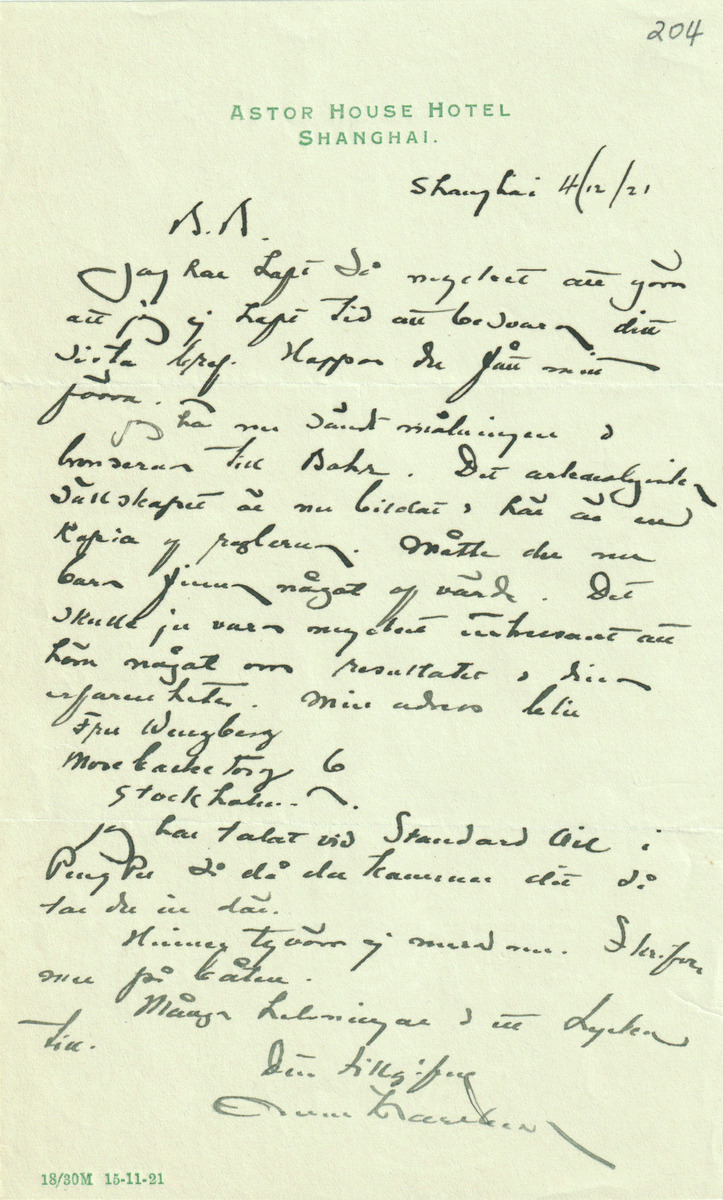 204
ASTOR HOUSE HOTEL
SHANGHAI.
Shanghai 4/12/21
B.B.
Jag har haft så mycket att göra
att jag ej haft tid att besvara ditt
sista bref. Hoppas du fått mitt
förra.
Jag ha nu sändt målningen &
bronserna till Bahr. Det arkeologiska
Sällskapet är nu bildat & här är en
Kopia af reglerna. Måtte du nu
bara finna något af värde. Det
skulle ju vara mycket intressant att
höra något om resultatet & dina
erfarenheter. Min adress blir
Fru Wengberg
Mosebacke Torg 6
Stockholm.
Jag har talat vid Standard Oil i
Peng Pu så då du kommer dit så
tar du in där.
Hinner tyvärr ej mera nu. Skrifver
mer på båten.
Många helsningar & ett Lycka
till.
Din tillgifne